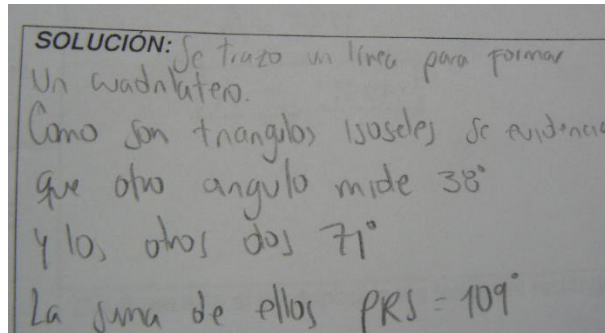 SOLUCIÓN: Se trazo un línea para formar
Un cuadrilatero.
Como son triangulos isoseles se evidencia
que otro angulo mide 38°
y los otros dos 71°
La suma de ellos PRS = 109°